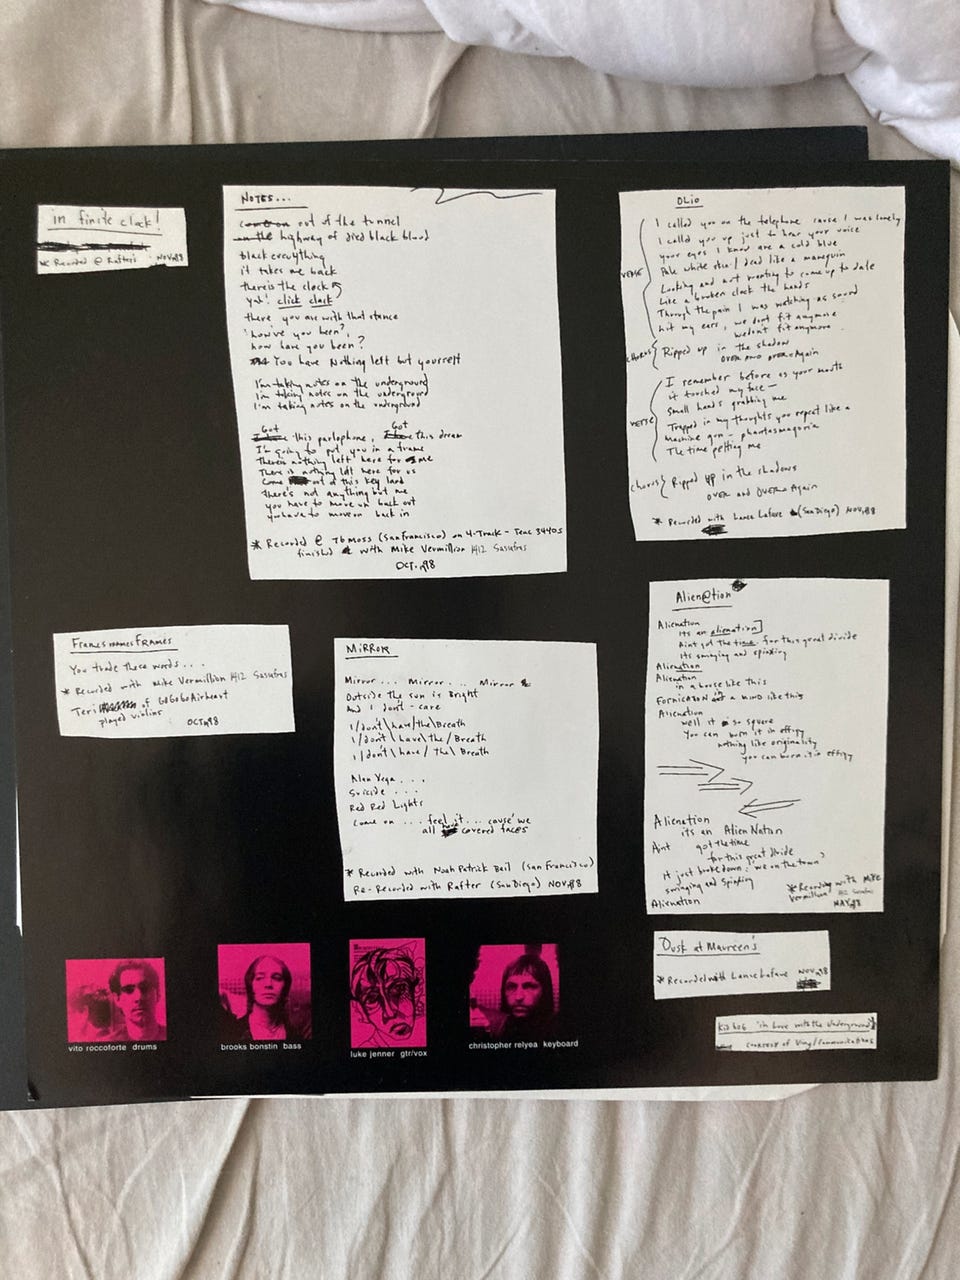 in finite clock!
* Recorded @ Rafters NOV,98
NOTES...
out of the tunnel
highway of died black blood
black everything
it takes me back
thereis the clock
yah! click clack
there you are with that stance
'how've you been?,
how have you been?
You have Nothing left but yourself
I'm taking notes on the underground
I'm taking notes on the underground
I'm taking notes on the underground
Got Got
this parlophone, this dream
I'm going to put you in a frame
There is nothing left here for me
There is nothing left here for us
Come out of this key land
there's not anything but me
you have to move on back out
you have to move on back in
* Recorded @ 76 Moss (San Francisco) on 4-Track - Teac 3440s
finished with Mike Vermillion 1412 Sassafras
OCT,98
OLIO
VERSE
I called you on the telephone cause I was lonely
I called you up just to hear your voice
your eyes I know are a cold blue
Pale white skin / dead like a manequin
Looking and not wanting to come up to date
Like a broken clock the hands
Through the pain I was watching as sound
hit my ears, we dont fit anymore
we dont fit anymore.
CHORUS
Ripped up in the shadow
OVER AND OVER Again
VERSE
I remember before as your mouth
it touched my face -
Small hands grabbing me
Trapped in my thoughts you repeat like a
Machine gun - phantasmagoria
The time pelting me
CHORUS
Ripped up in the shadows
OVER and OVER Again
* Recorded with Lance Lafave (San Diego) NOV,98
Frames names FRAMES
You trade these words...
* Recorded with Mike Vermillion 1412 Sassafras
Teri of GoGoGo Airheart
played violins OCT,98
MIRROR
Mirror... Mirror... Mirror
Outside the sun is Bright
And I don't - care
I/don't\have/the\Breath
I/don't\have\the/Breath
I/don't\have/the\Breath
Alan Vega...
Suicide...
Red Red Lights
Come on... feel it... cause' we
all covered faces
* Recorded with Noah Patrick Bail (San Francisco)
Re-Recorded with Rafter (San Diego) NOV,98
Alien@tion
Alienation
its an alienation
Aint got the time for this great divide
its swinging and spinking
Alienation
Alienation
in a house like this
FORNICATION a MIND like this
Alienation
well it so square
You can burn it in effigy
nothing like originality
you can burn it in effigy
Alienation
its an Alien Nation
Aint got the time
for this great divide
it just broke down: we on the town?
swinging and spinking
Alienation
* Recording with Mike
Vermillion 1412 Sassafras
MAY,98
Dusk at Maureen's
* Recorded with Lance Lafave NOV,98
Kid 606 'in Love with the Underground'
courtesy of Vinyl Communications
vito roccoforte drums
brooks bonstin bass
luke jenner gtr/vox
christopher relyea keyboard